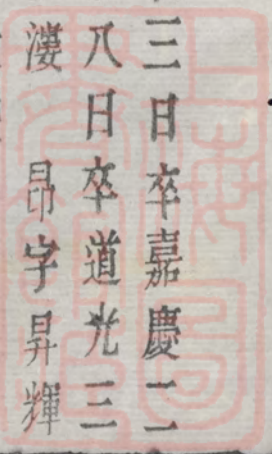 三日卒嘉慶二
八日卒道光三
漊 昂字昇輝